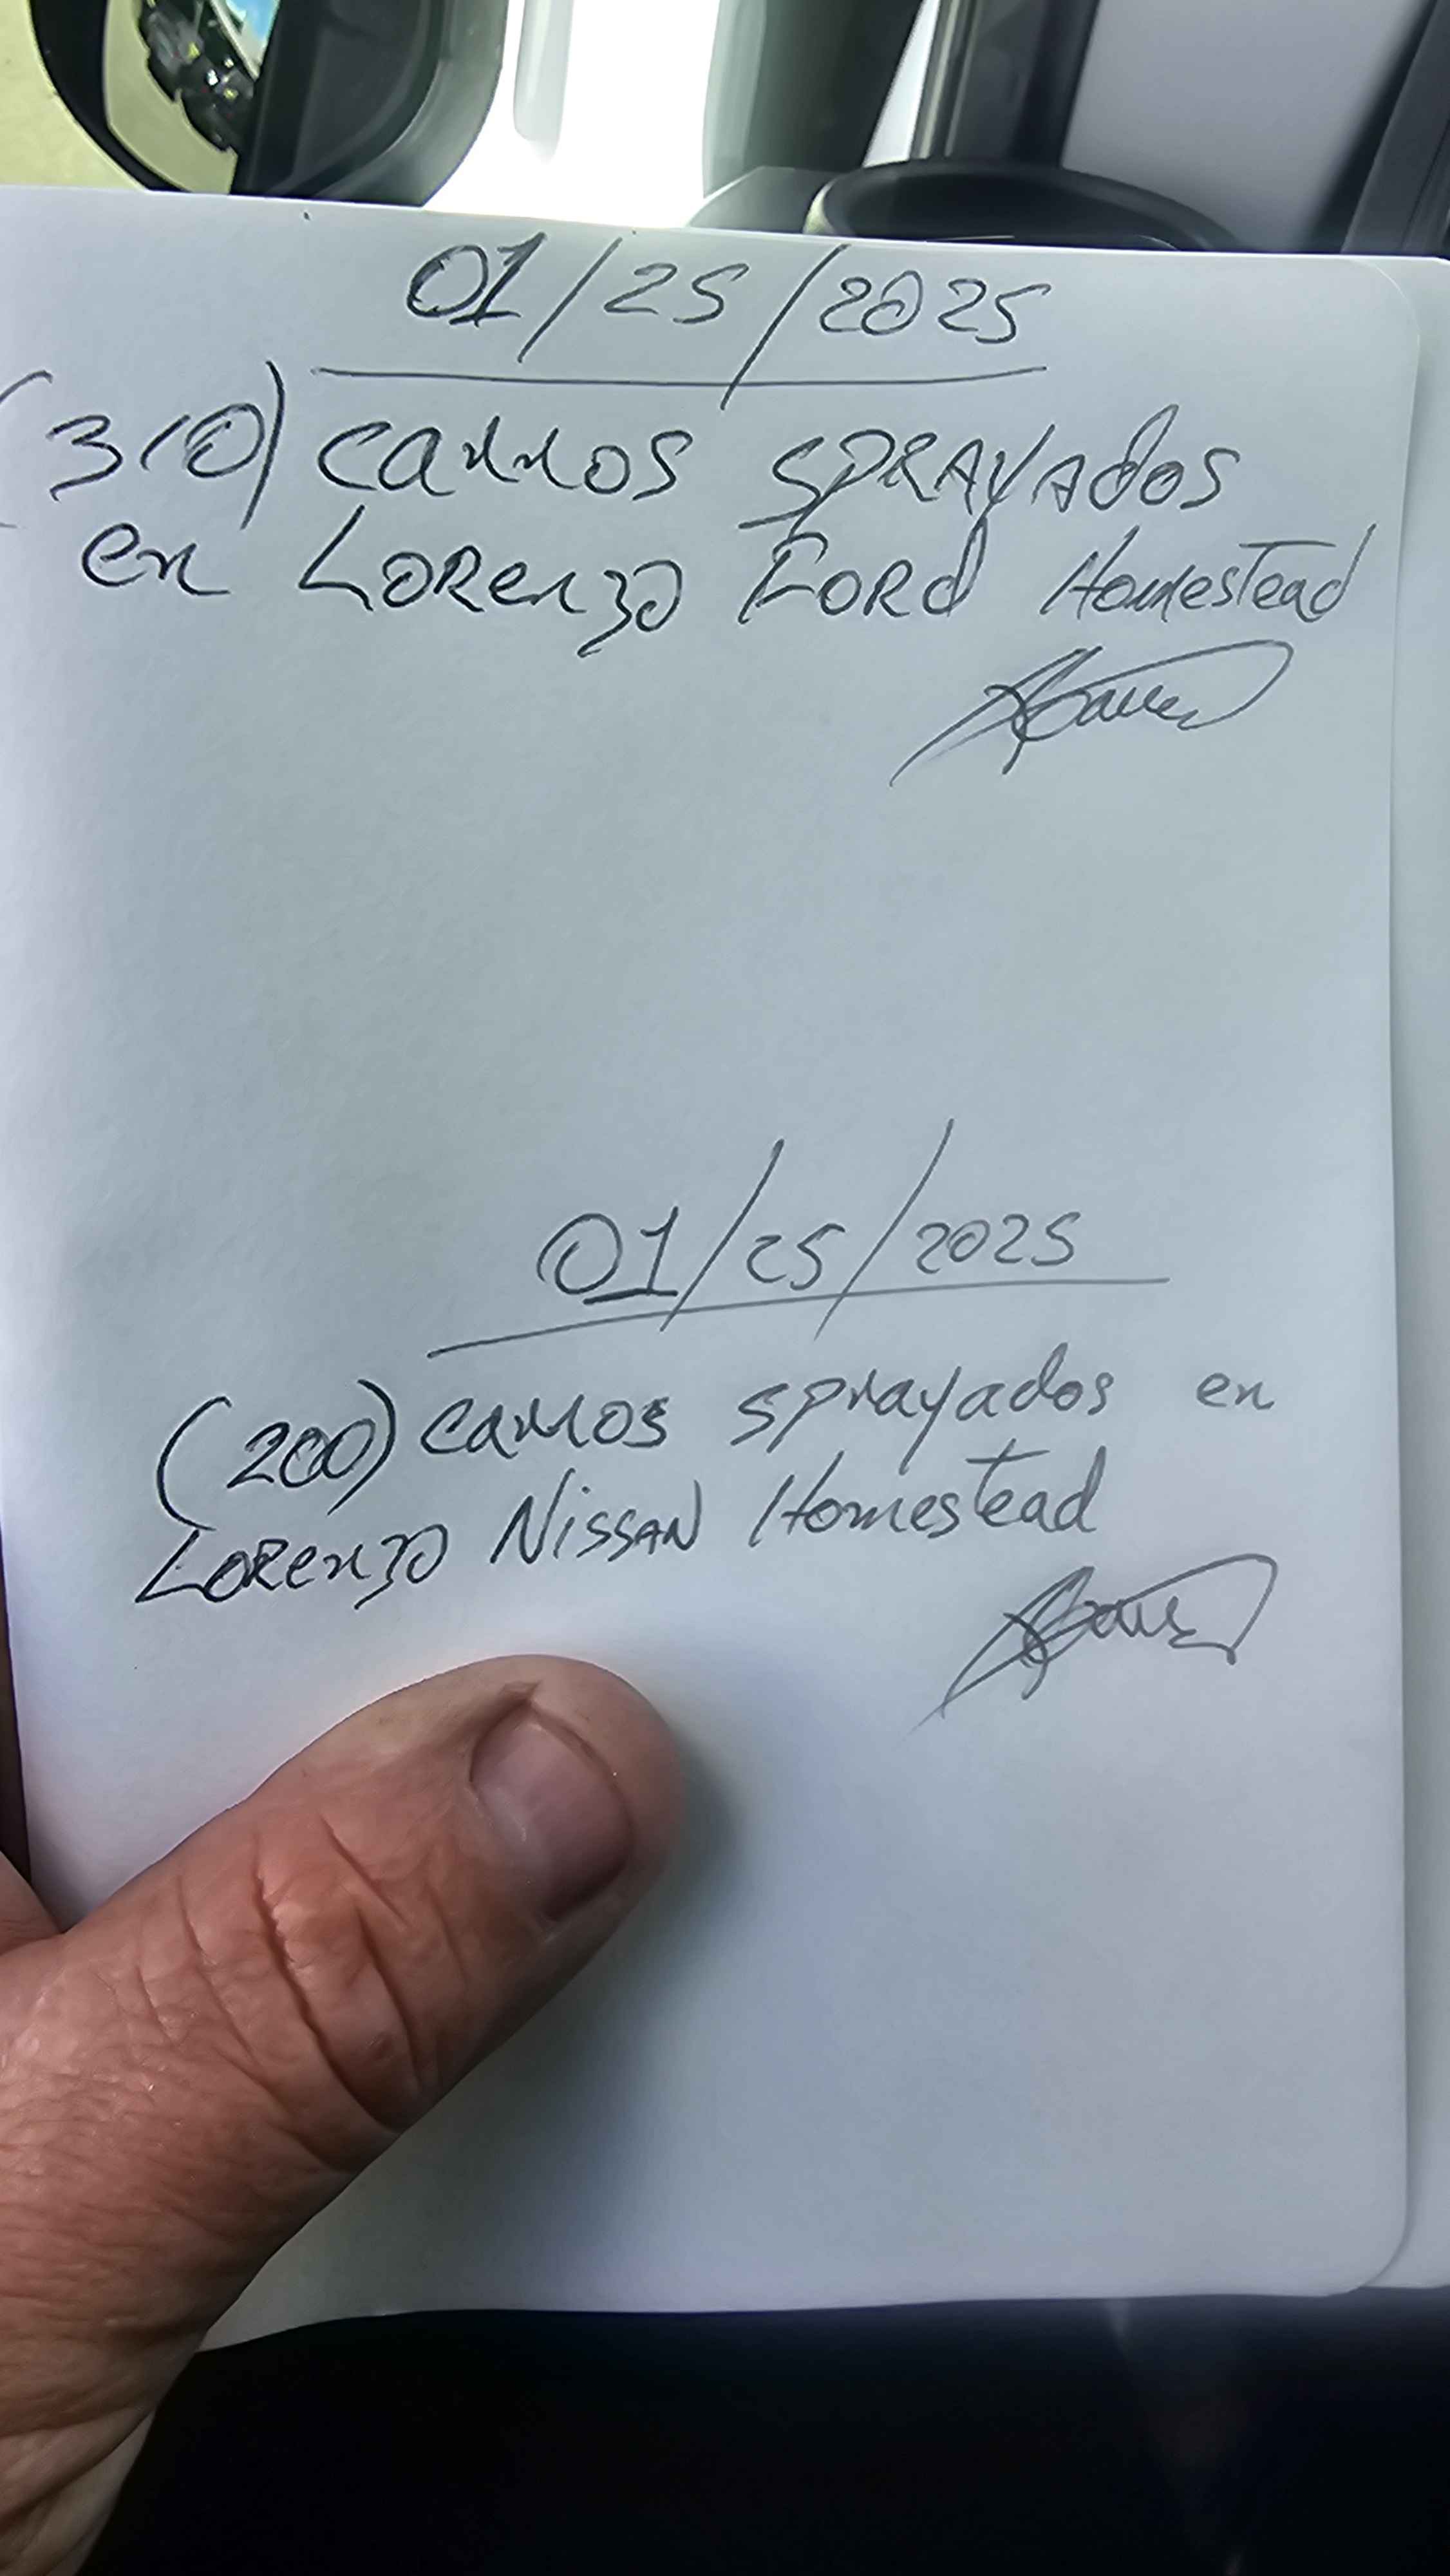 01/25/2025
(310) carros SPRAYAdos
en LORenzo FORd Homestead
01/25/2025
(200) carros sprayados en
LORenzo NissAN Homestead